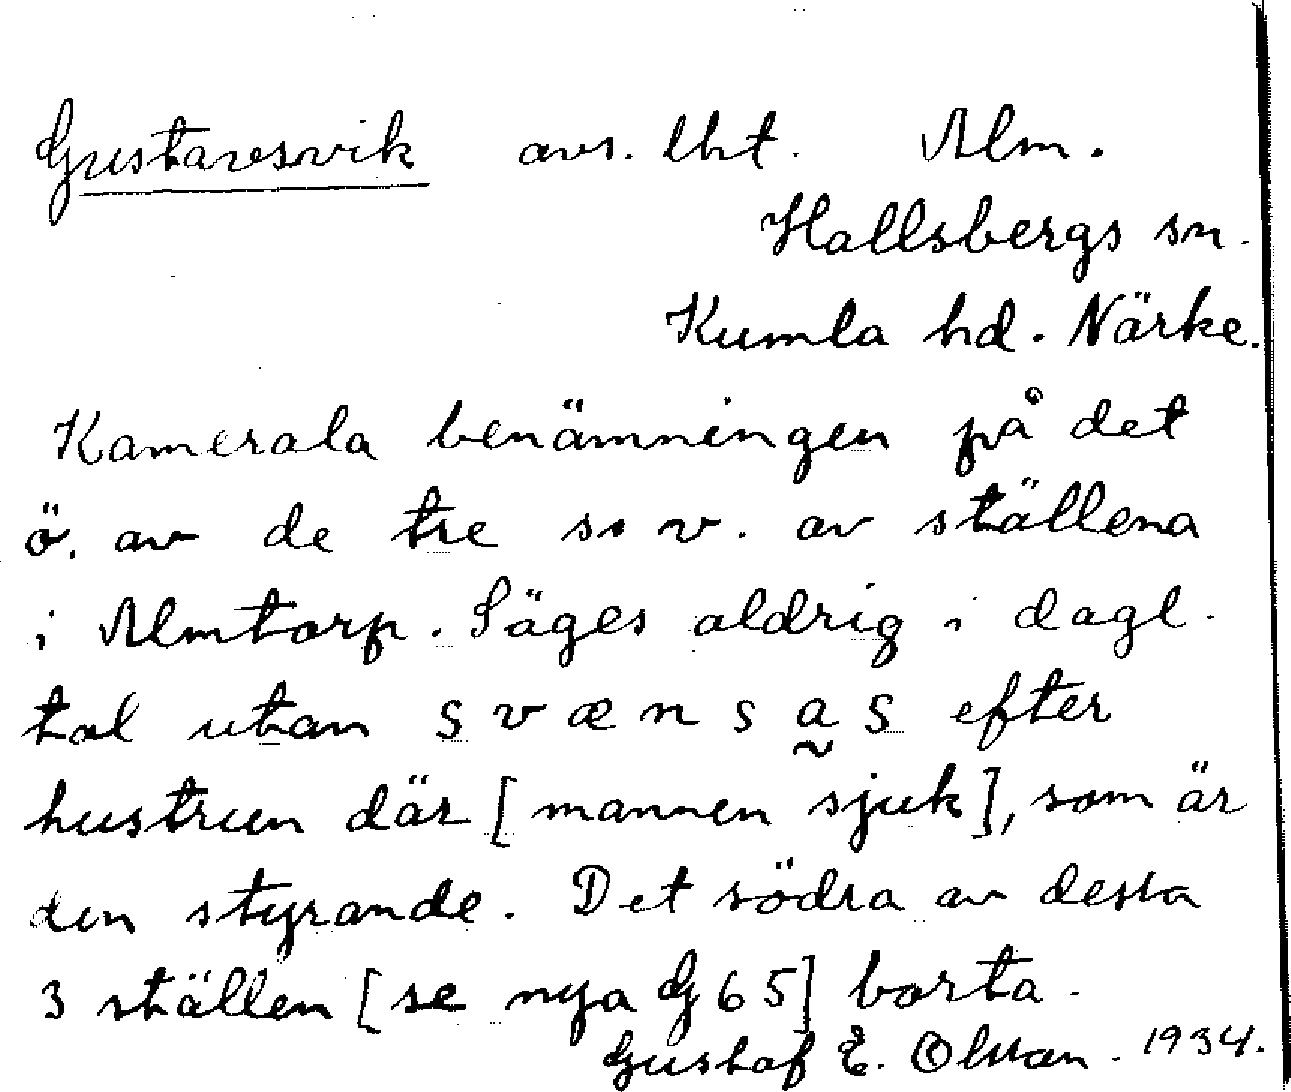 Gustavsvik avs. lht. Alm.
Hallsbergs sn.
Kumla hd. Närke.
Kamerala benämningen på det
ö. av de tre s. v. av ställena
i Almtorp. Säges aldrig i dagl.
tal utan svænsas efter
hustrun där [mannen sjuk], som är
den styrande. Det södra av dessa
3 ställen [se nya G 65] borta.
Gustaf E. Olsson. 1934.